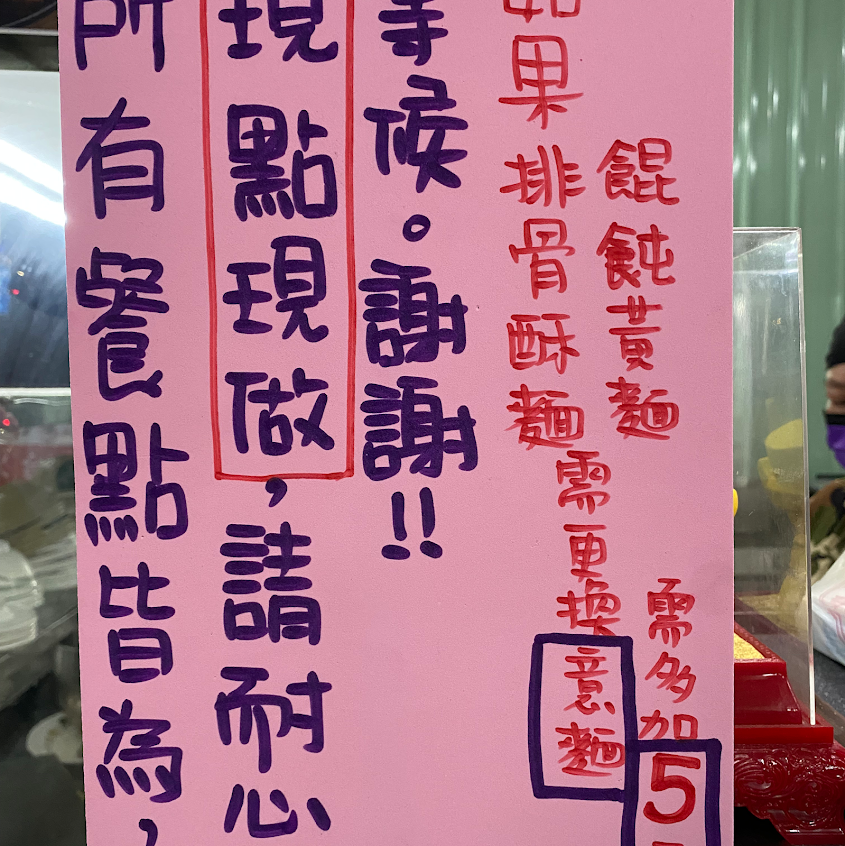 所有餐點皆為，
現點現做，請耐心
等候。謝謝!!
如果排骨酥麵
餛飩黃麵
需更換意麵
需多加5